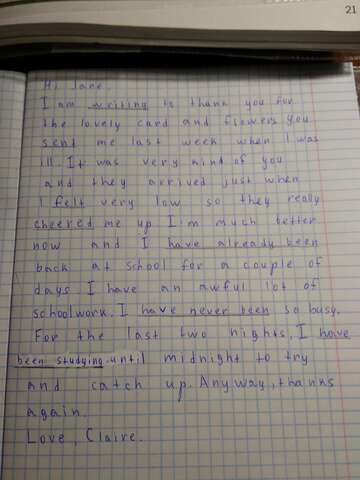 21
Hi Jane.
I am writing to thank you for
the lovely card and flowers you
sent me last week when I was
ill. It was very kind of you
and they arrived just when
I felt very low so they really
cheered me up I'm much better
now and I have already been
back at school for a couple of
days I have an awful lot of
schoolwork. I have never been so busy.
For the last two nights, I have
been studying until midnight to try
and catch up. Anyway, thanks
again.
Love, Claire.